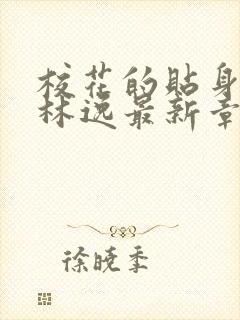 校花的贴身
林逸最新章
徐晓季